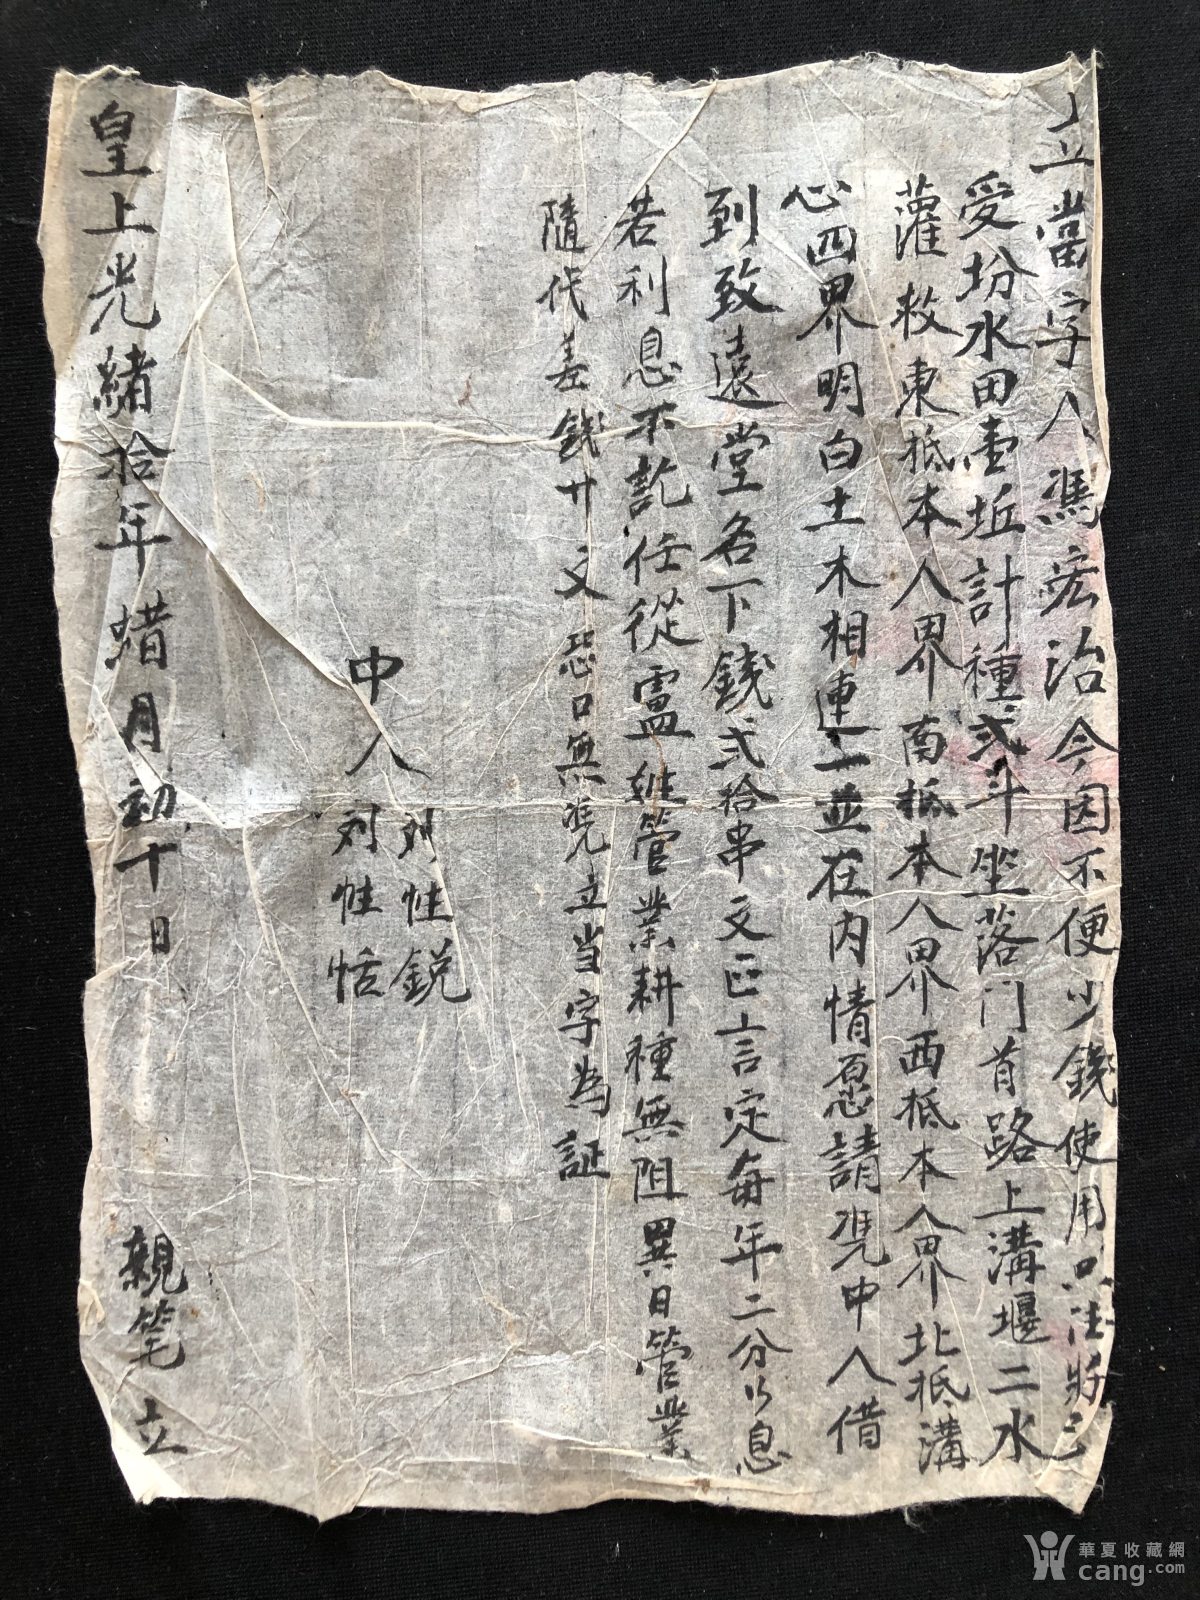 立當字人馮宏治今因不便少錢使用只得將己
受坋水田壹坵計種弍斗坐落門首路上溝堰二水
灌救東抵本人界南抵本人界西抵本人界北抵溝
心四界明白土木相連一並在内情愿請凴中人借
到致遠堂名下錢弍拾串文正言定每年二分公息
若利息不訖任從盧姓管業耕種無阻異日管業
隨代差錢廿文恐口無凴立当字為証
中人
列性銳
列性恬
皇上光緒拾年蜡月初十日 親筆 立
華夏收藏網
cang.com